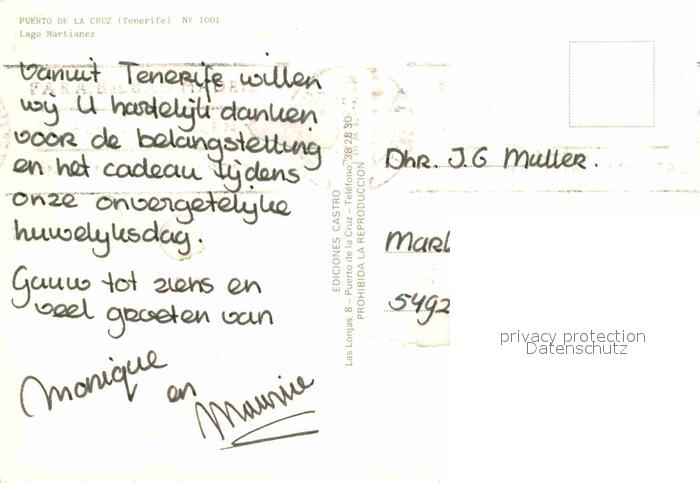 PUERTO DE LA CRUZ (Tenerife) Nº 1001
Lago Martianez
Vanuit Tenerife willen
wij U hartelijk danken
voor de belangstelling
en het cadeau tijdens
onze onvergetelijke
huwelijksdag.
Gauw tot ziens en
veel groeten van
Monique
en
Maurice
EDICIONES CASTRO
Las Lonjas, 8 – Puerto de la Cruz – Teléfono, 38 28 30
PROHIBIDA LA REPRODUCCION
Dhr. J.G Muller.
MARL
5492
privacy protection
Datenschutz